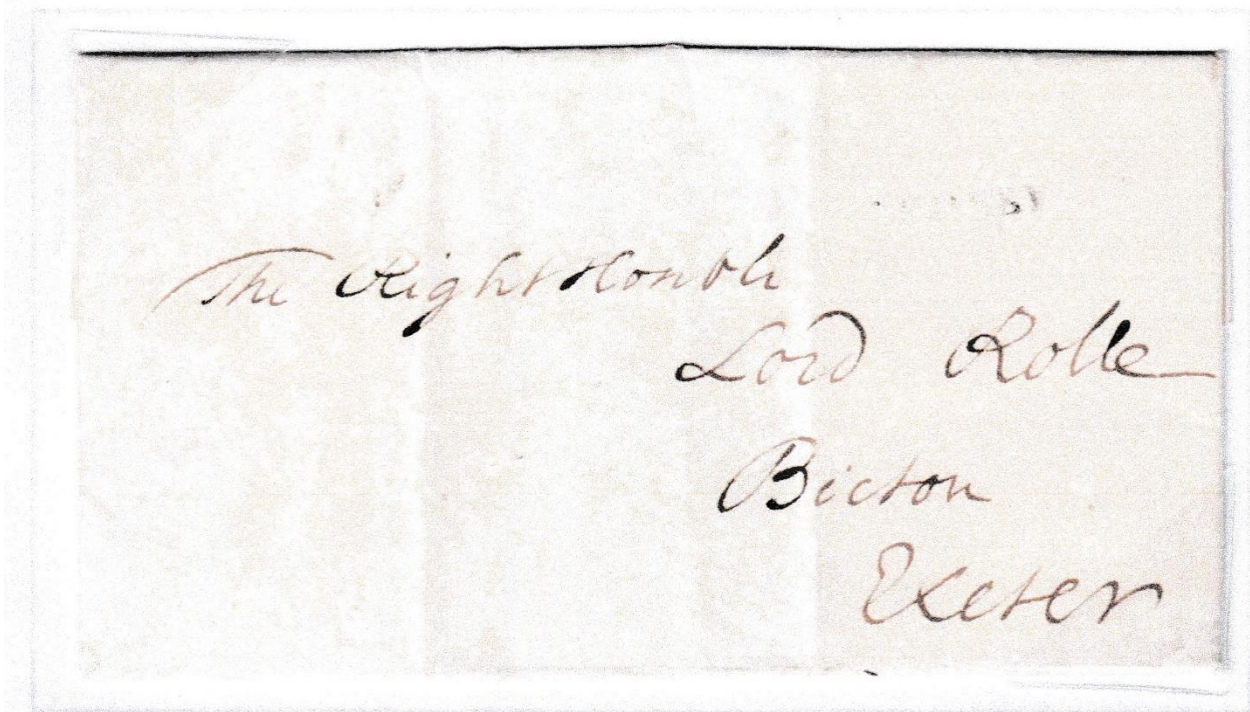 The Right Honble
Lord Rolle
Bicton
Exeter